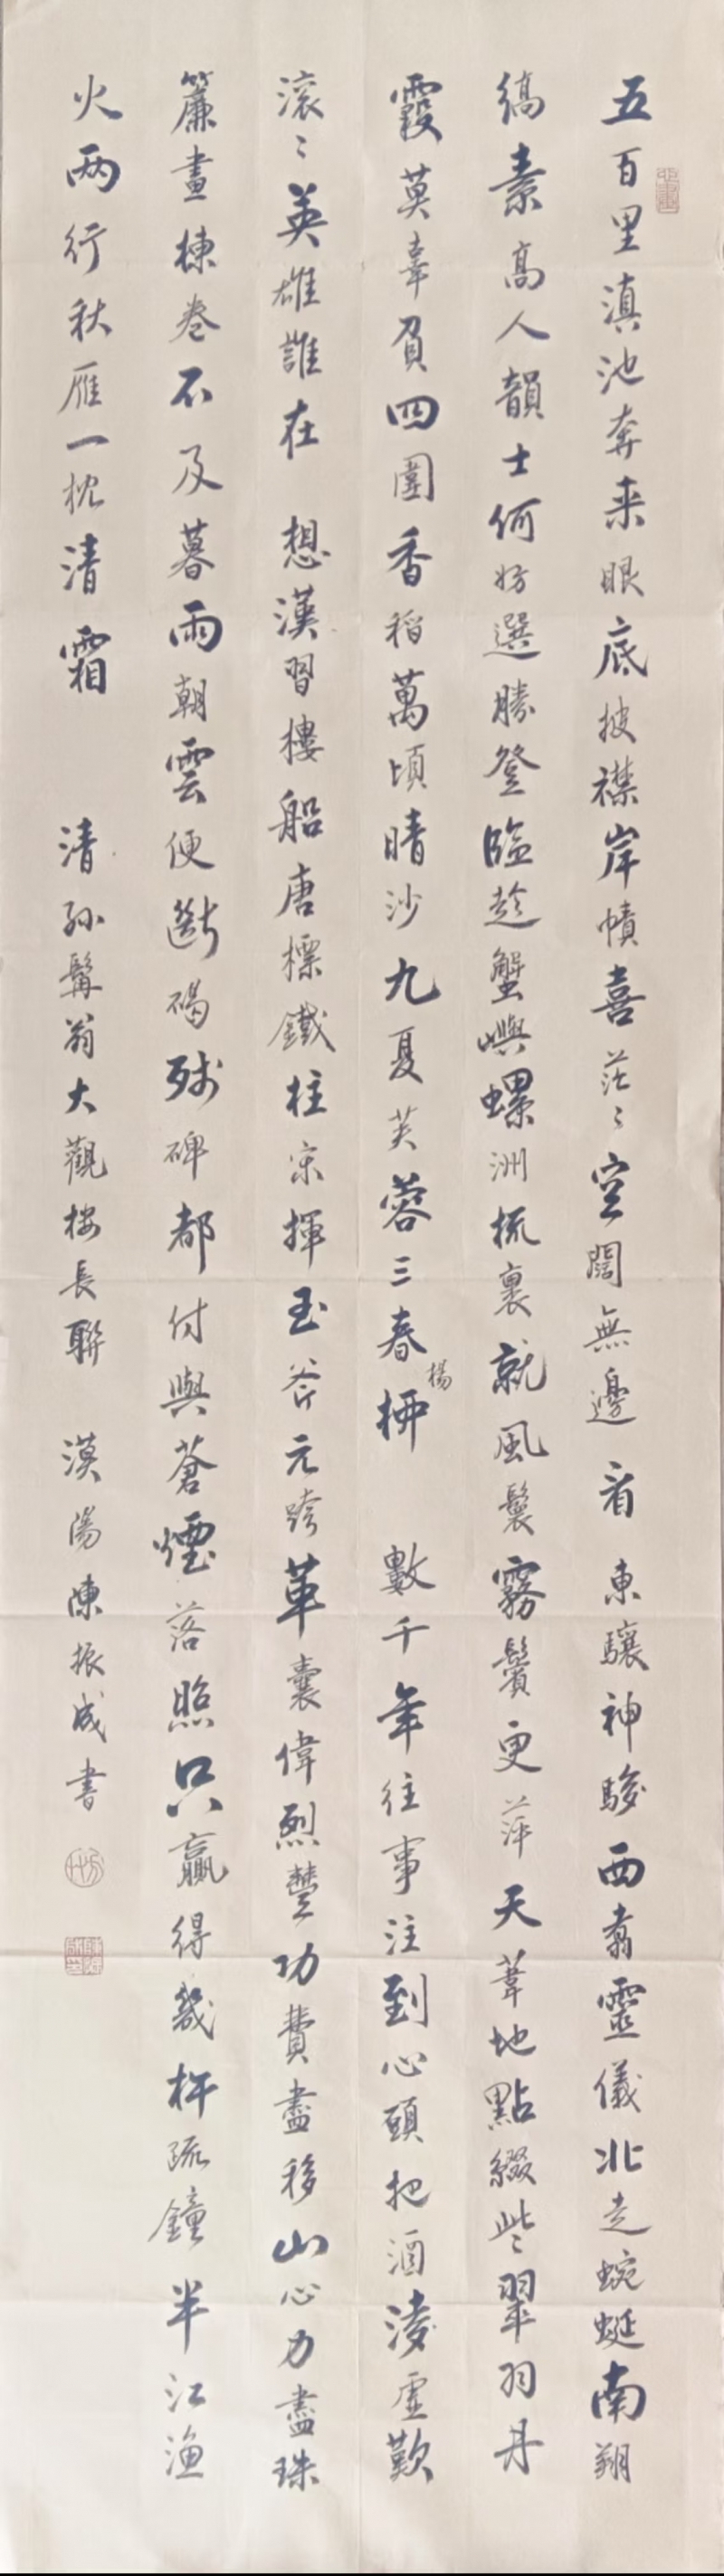 五百里滇池奔来眼底披襟岸幘喜茫〻空闊無邊看東驤神駿西翥靈儀北走蜿蜒南翔
縞素高人韻士何妨選勝登臨趁蟹嶼螺洲梳裹就風鬟霧鬢更蘋天葦地點綴些翠羽丹
霞莫辜負四圍香稻萬頃晴沙九夏芙蓉三春楊柳數千年往事注到心頭把酒凌虛歎
滚〻英雄誰在想漢習樓船唐標鐵柱宋揮玉斧元跨革囊偉烈豐功費盡移山心力盡珠
簾畫棟卷不及暮雨朝雲便斷碣殘碑都付與蒼煙落照只贏得幾杵疏鐘半江漁
火兩行秋雁一枕清霜
清孫髯翁大觀樓長聯
漢陽陳振成書